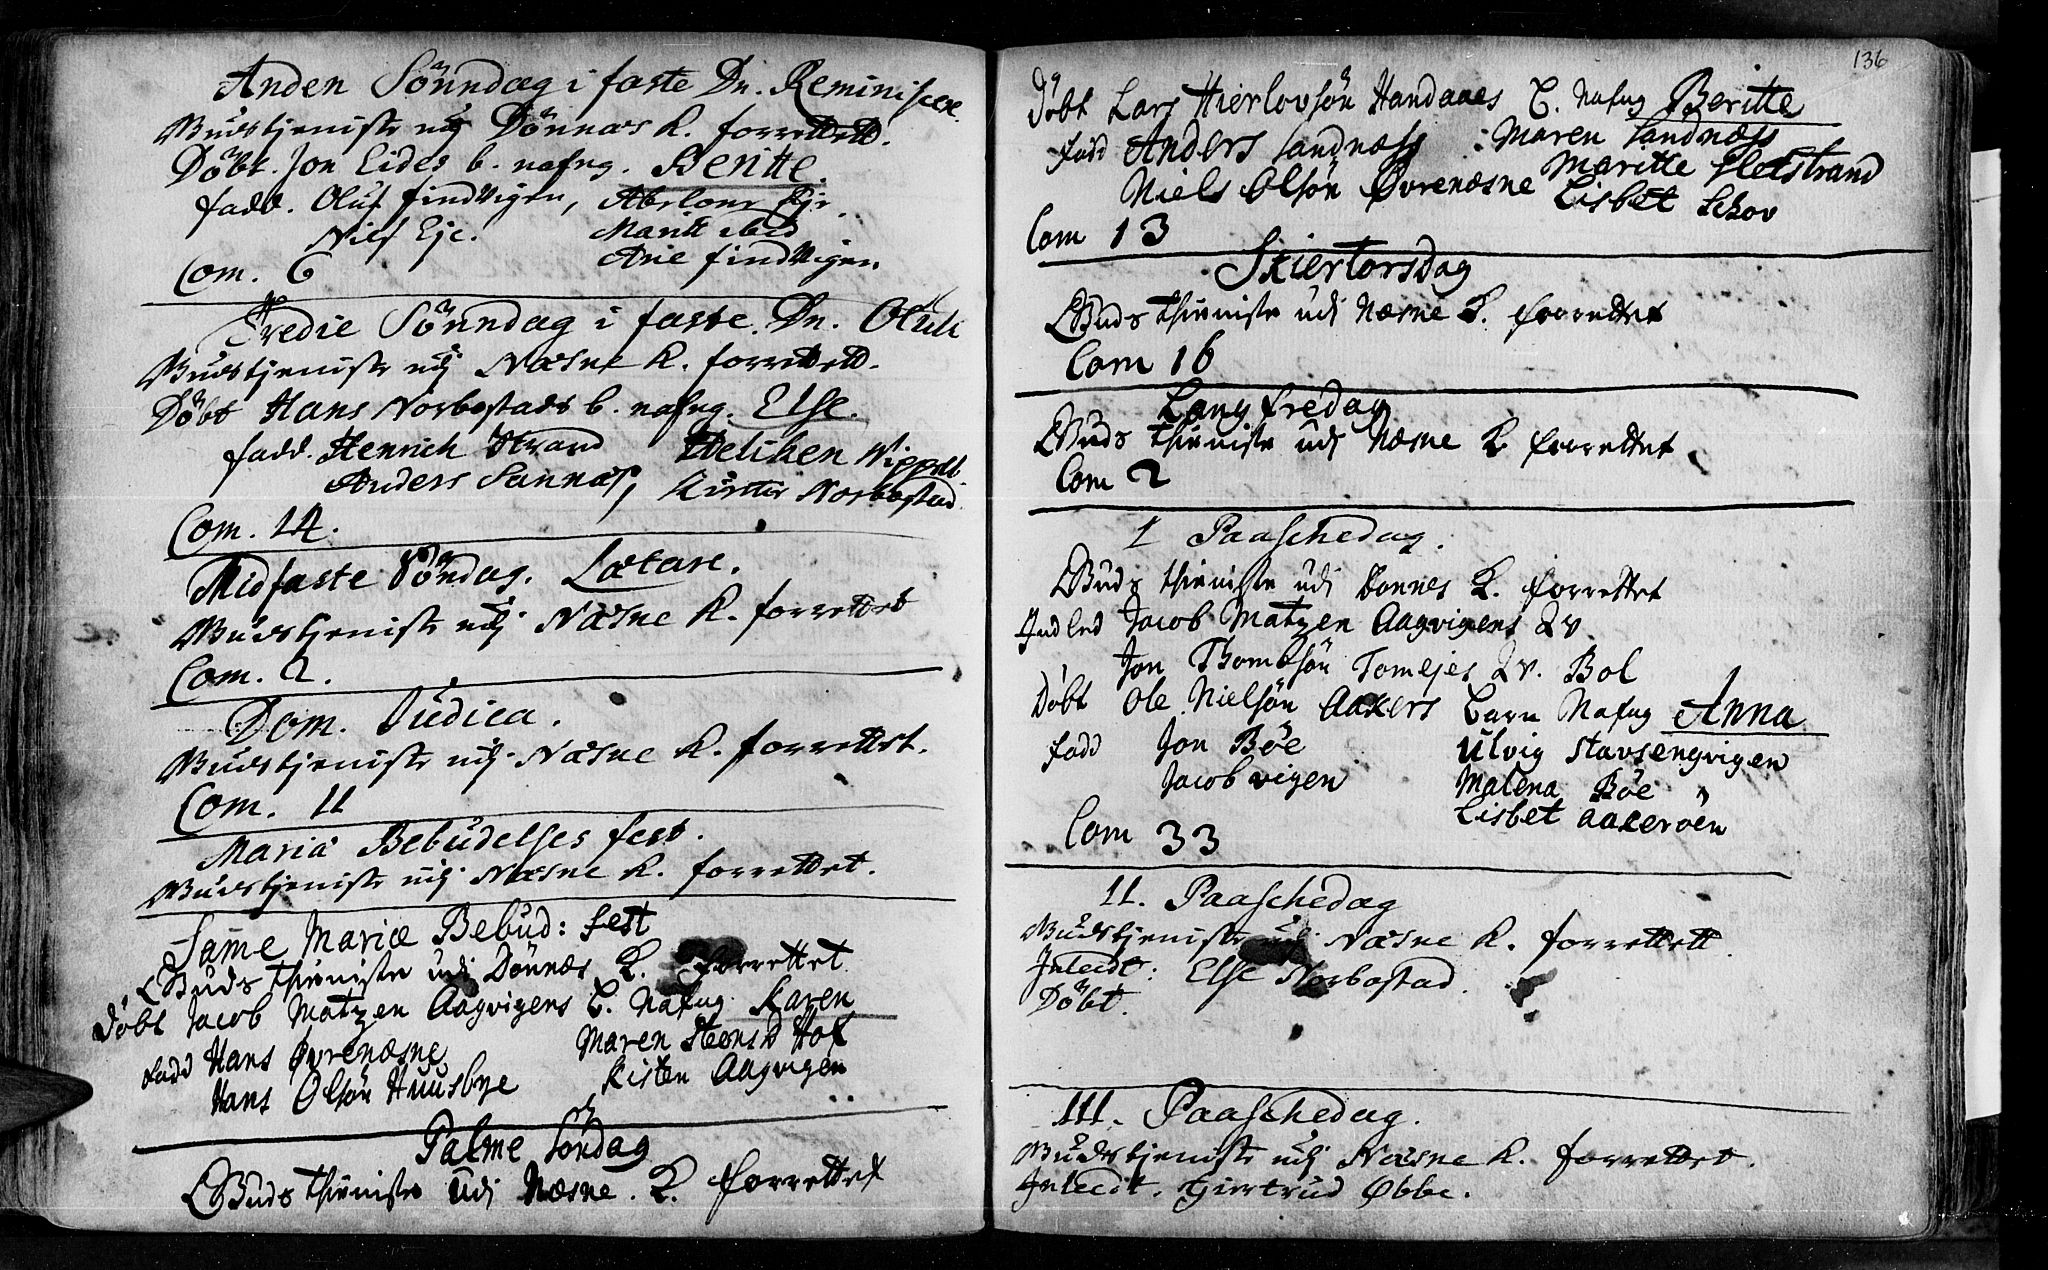 Anden Sönndag i faste Dn. Reminiscere.
Gudstjeniste udj Dönnæs K. forrettett.
Döbt. Jon Eides b. nafng. Beritte.
fadd. Oluf findvigen, Abelone Eje
Niels Eje. Maritt ibid
Com. 6 Arie findvigen.
Tredie Sönndag i faste. Dn. Oculi
Gudstjeniste udj Næsne K. forrettett.
Döbt Hans Norbostads b. nafng. Else.
fadd. Henrich Strand Helihen
Anders Sannæs, Norbostad
Com. 14.
Midfaste Söndag. Lætare.
Gudstjeniste udj Næsne K. forrettet
Com. 2.
Dom. Judica.
Gudstjeniste udj Næsne K. forrettet.
Com. 11
Mariæ Bebudelses fest.
Gudstjeniste udj Næsne K. forrettet.
Same Mariæ Bebud: fest
Guds thieniste udi Dönnæs K. forrettet
Döbt Jacob Matzen Aagvigens B. Nafng Karen
fadd Hans Øvrenæsne Maren Hof
Hans Olsön Huusbye Kisten Aagvigen
Palme Söndag
Guds thieniste udi Næsne. K. forrettet
136
Döbt Lars Hierlovsön Handaaes B. Nafng Beritte
fadd Anders Sandnæss Maren Sandnæss
Niels Olsön Øvrenæsne Maritte Helstrand
Lisbet Schov
Com 13
Skiertorsdag
Guds thieniste udi Næsne K. forrettet
Com 16
Lang fredag
Guds thieniste udi Næsne K forrettet
Com 2
1 Paaschedag.
Guds thieniste udi Donnes K. forrettet
Indled Jacob Matzen Aagvigens Qv.
Jon Thomesön Tomejes Qv. Bol
Döbt Ole Nielsön Aakers Barn Nafng Anna
fadd Jon Böe Ulvig Stavsengvigen
Jacob vigen Malena Böe
Lisbet Aakeröen
Com 33
11. Paaschedag
Gudstjeniste udj Næsne K. forrettett.
Inleedt: Else Norbostad.
Döbt.
111. Paaschedag.
Gudstjeniste udj Næsne K. forrettet.
Inleedt. Giertrud Øbbe.